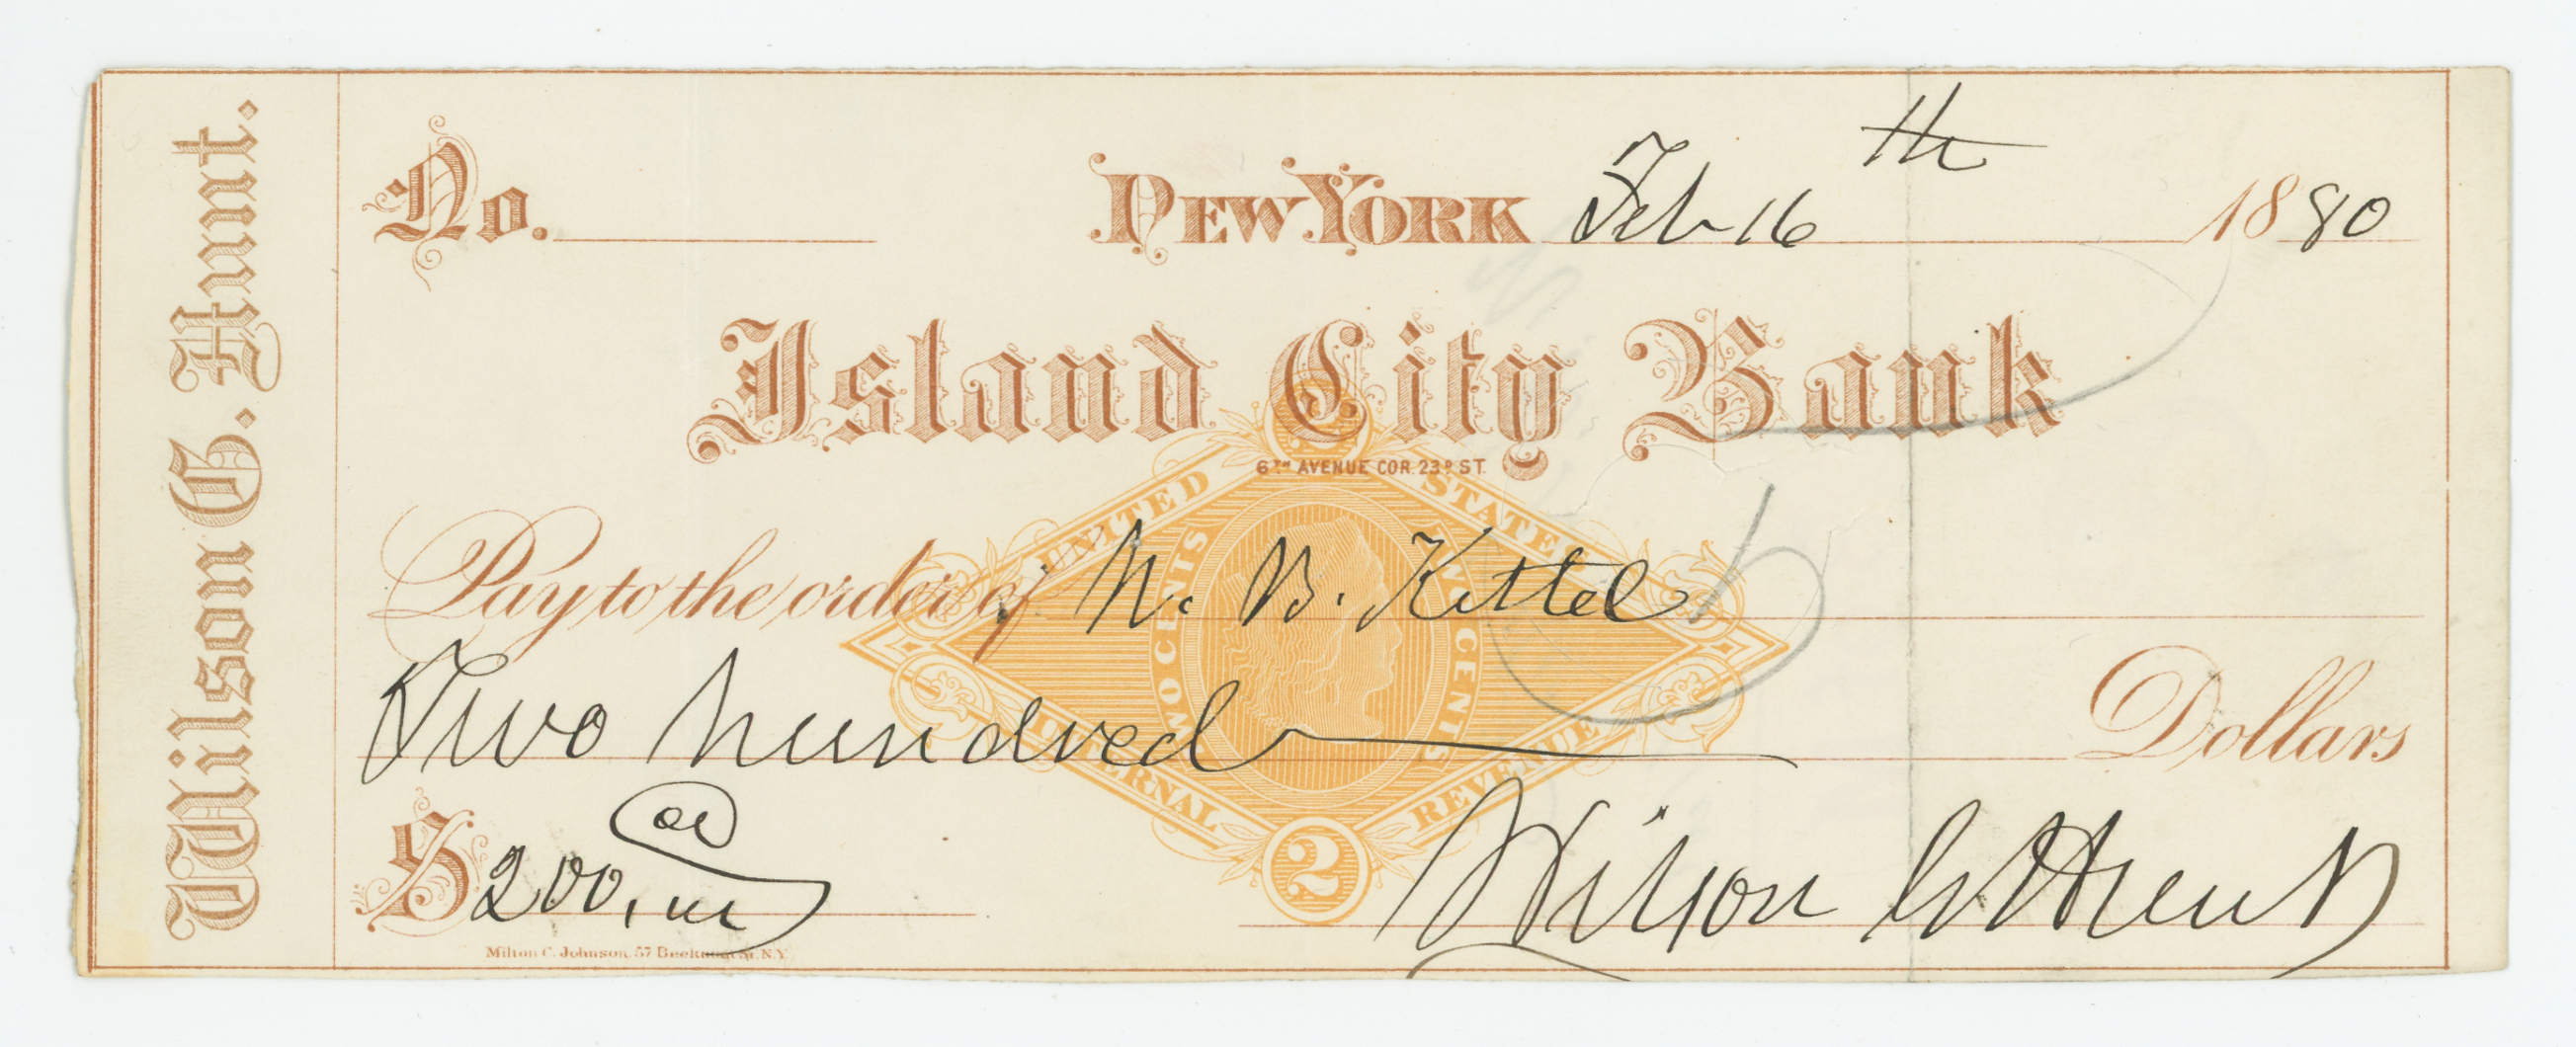 Wilson G. Hunt.
No.
New York Feb 16th 1880
Island City Bank
6TH AVENUE COR. 23D ST.
Pay to the order of N. B. Kittel
Two hundred Dollars
$200,
Wilson G Hunt
Milton C. Johnson, 57 Beekman St. N.Y.
2
UNITED STATES
TWO CENTS
TWO CENTS
INTERNAL REVENUE
2